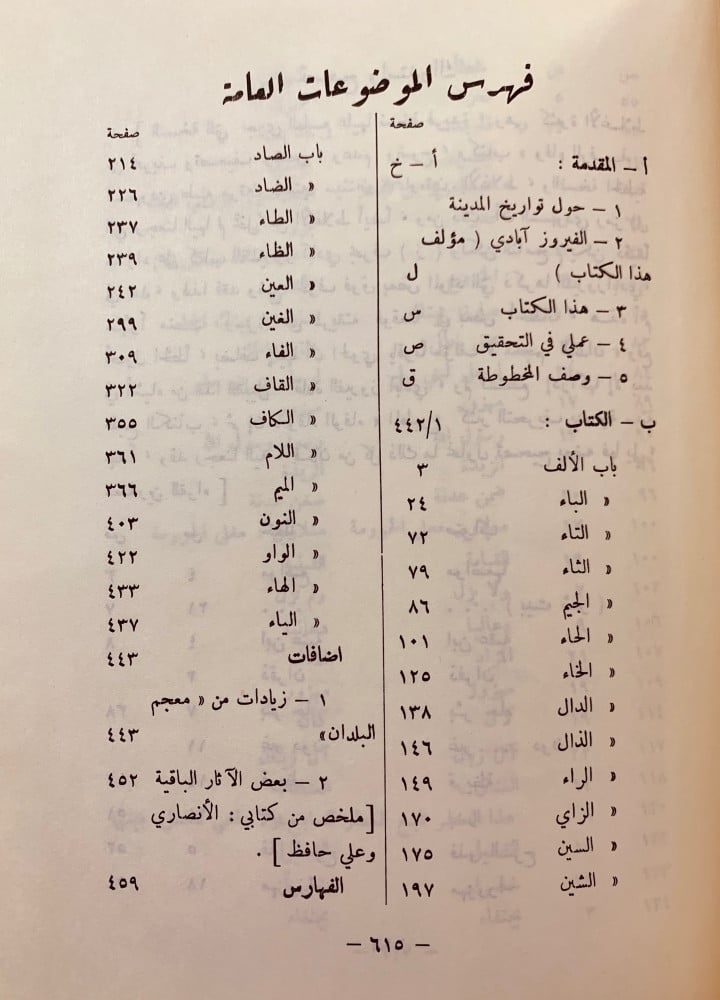 فهرس الموضوعات العامة
صفحة
أ — المقدمة : أ — خ
١ — حول تواريخ المدينة
٢ — الفيروز آبادي ( مؤلف
هذا الكتاب ) ل
٣ — هذا الكتاب س
٤ — عملي في التحقيق ص
٥ — وصف المخطوطة ق
ب — الكتاب : ٤٤٢/١
باب الألف ٣
« الباء ٢٤
« التاء ٧٢
« الثاء ٧٩
« الجيم ٨٦
« الحاء ١٠١
« الخاء ١٢٥
« الدال ١٣٨
« الذال ١٤٦
« الراء ١٤٩
« الزاي ١٧٠
« السين ١٧٥
« الشين ١٩٧
صفحة
باب الصاد ٢١٤
« الضاد ٢٢٦
« الطاء ٢٣٧
« الظاء ٢٣٩
« العين ٢٤٢
« الغين ٢٩٩
« الفاء ٣٠٩
« القاف ٣٢٢
« الكاف ٣٥٥
« اللام ٣٦١
« الميم ٣٦٦
« النون ٤٠٣
« الواو ٤٢٢
« الهاء ٤٣٣
« الياء ٤٣٧
اضافات ٤٤٣
١ — زيادات من « معجم
البلدان» ٤٤٣
٢ — بعض الآثار الباقية ٤٥٢
[ملخص من كتابي : الأنصاري
وعلي حافظ ] .
الفهارس ٤٥٩
— ٦١٥ —